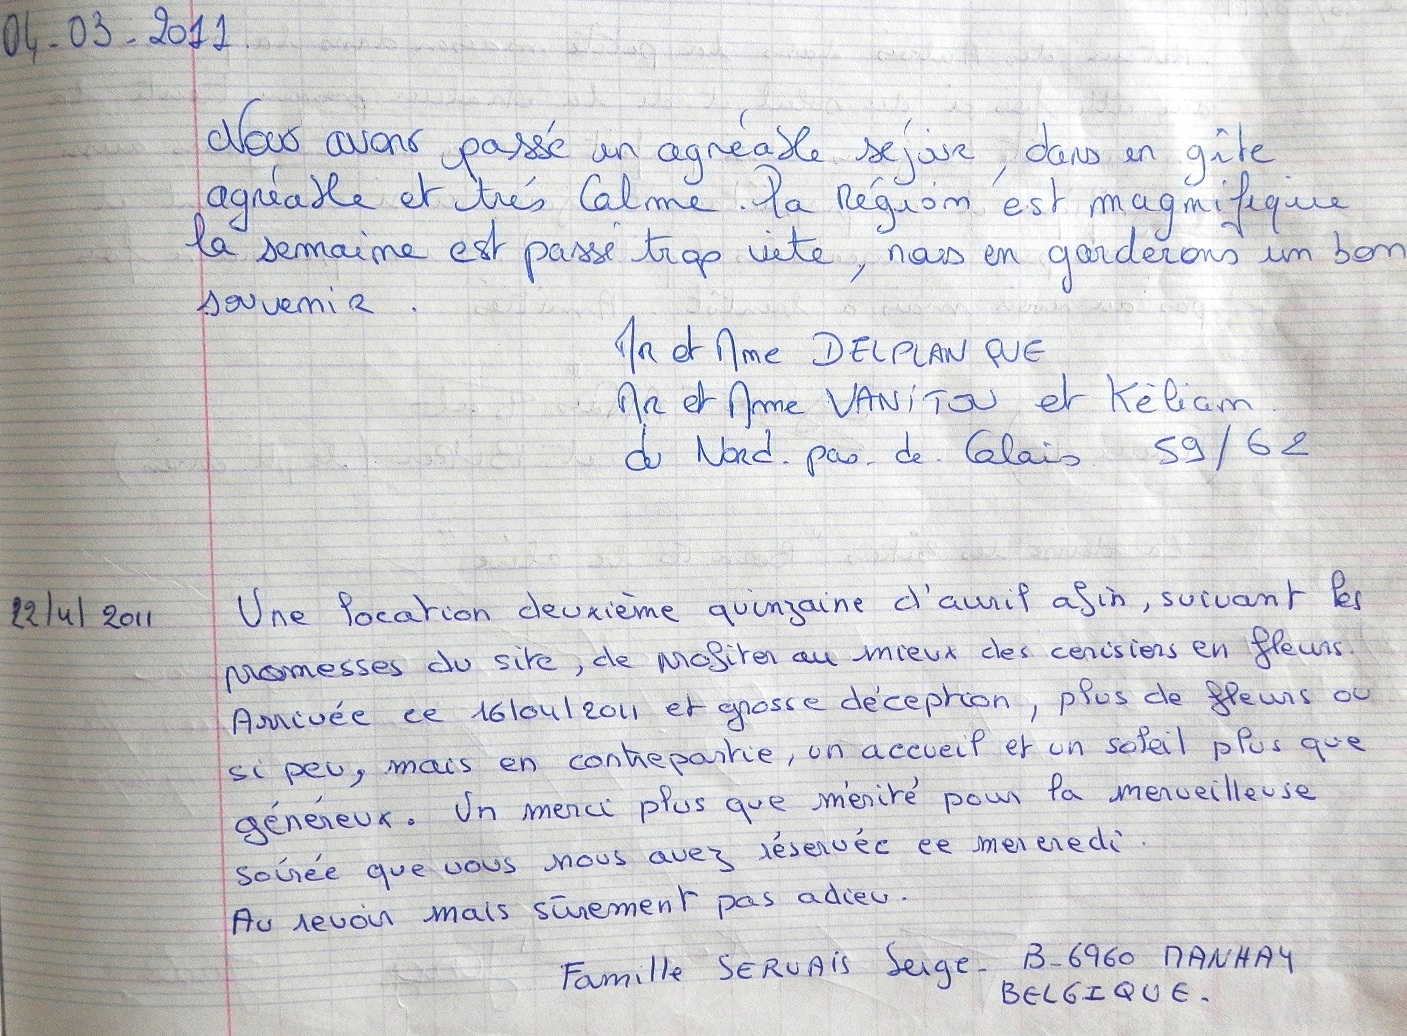 04-03-2011.
Nous avons passé un agréable séjour, dans en gîte
agréable et trés Calme. la Région est magnifique
la semaine est passé trop viete, nous en garderons un bon
souvenir.
Mr et Mme DELPLANQUE
Mr et Mme VANiTOU et Kéliam
du Nord. pas. de. Calais 59/62
22/4/2011 Une location deuxième quinzaine d'avril afin, suivant les
promesses du site, de profiter au mieux des cerisiers en fleurs.
Arrivée ce 16/04/2011 et grosse déception, plus de fleurs ou
si peu, mais en contrepartie, un accueil et un soleil plus que
généreux. Un merci plus que mérité pour la merveilleuse
soirée que vous nous avez réservée ce mercredi.
Au revoir mais sûrement pas adieu.
Famille SERVAIS Serge- B-6960 MANHAY
BELGIQUE.